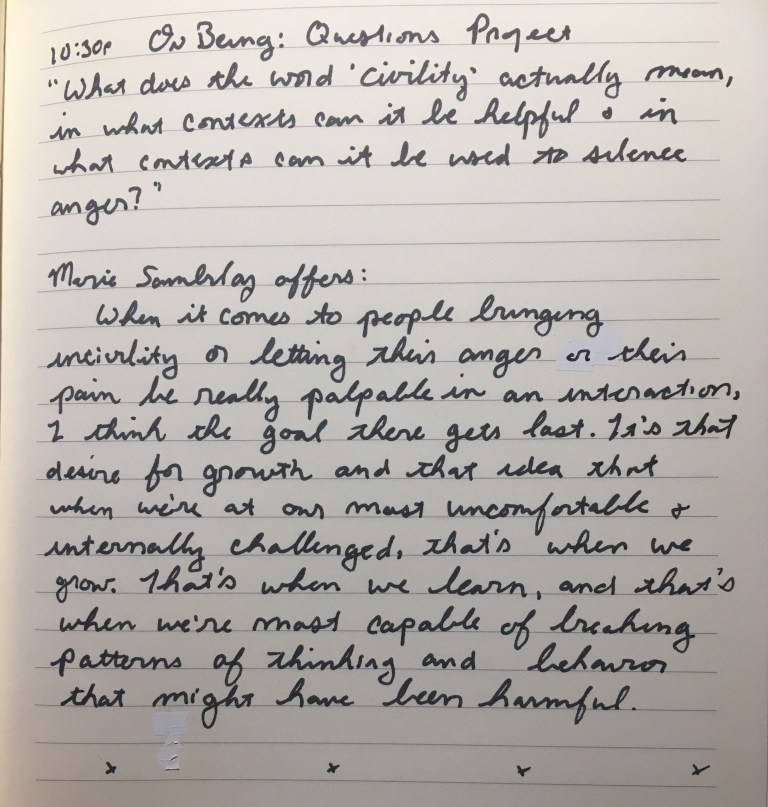 10:30p On Being: Questions Project
"What does the word 'civility' actually mean,
in what contexts can it be helpful & in
what contexts can it be used to silence
anger?"
Marie offers:
When it comes to people bringing
incivility or letting their anger or their
pain be really palpable in an interaction,
I think the goal there gets lost. It's that
desire for growth and that idea that
when we're at our most uncomfortable &
internally challenged, that's when we
grow. That's when we learn, and that's
when we're most capable of breaking
patterns of thinking and behavior
that might have been harmful.